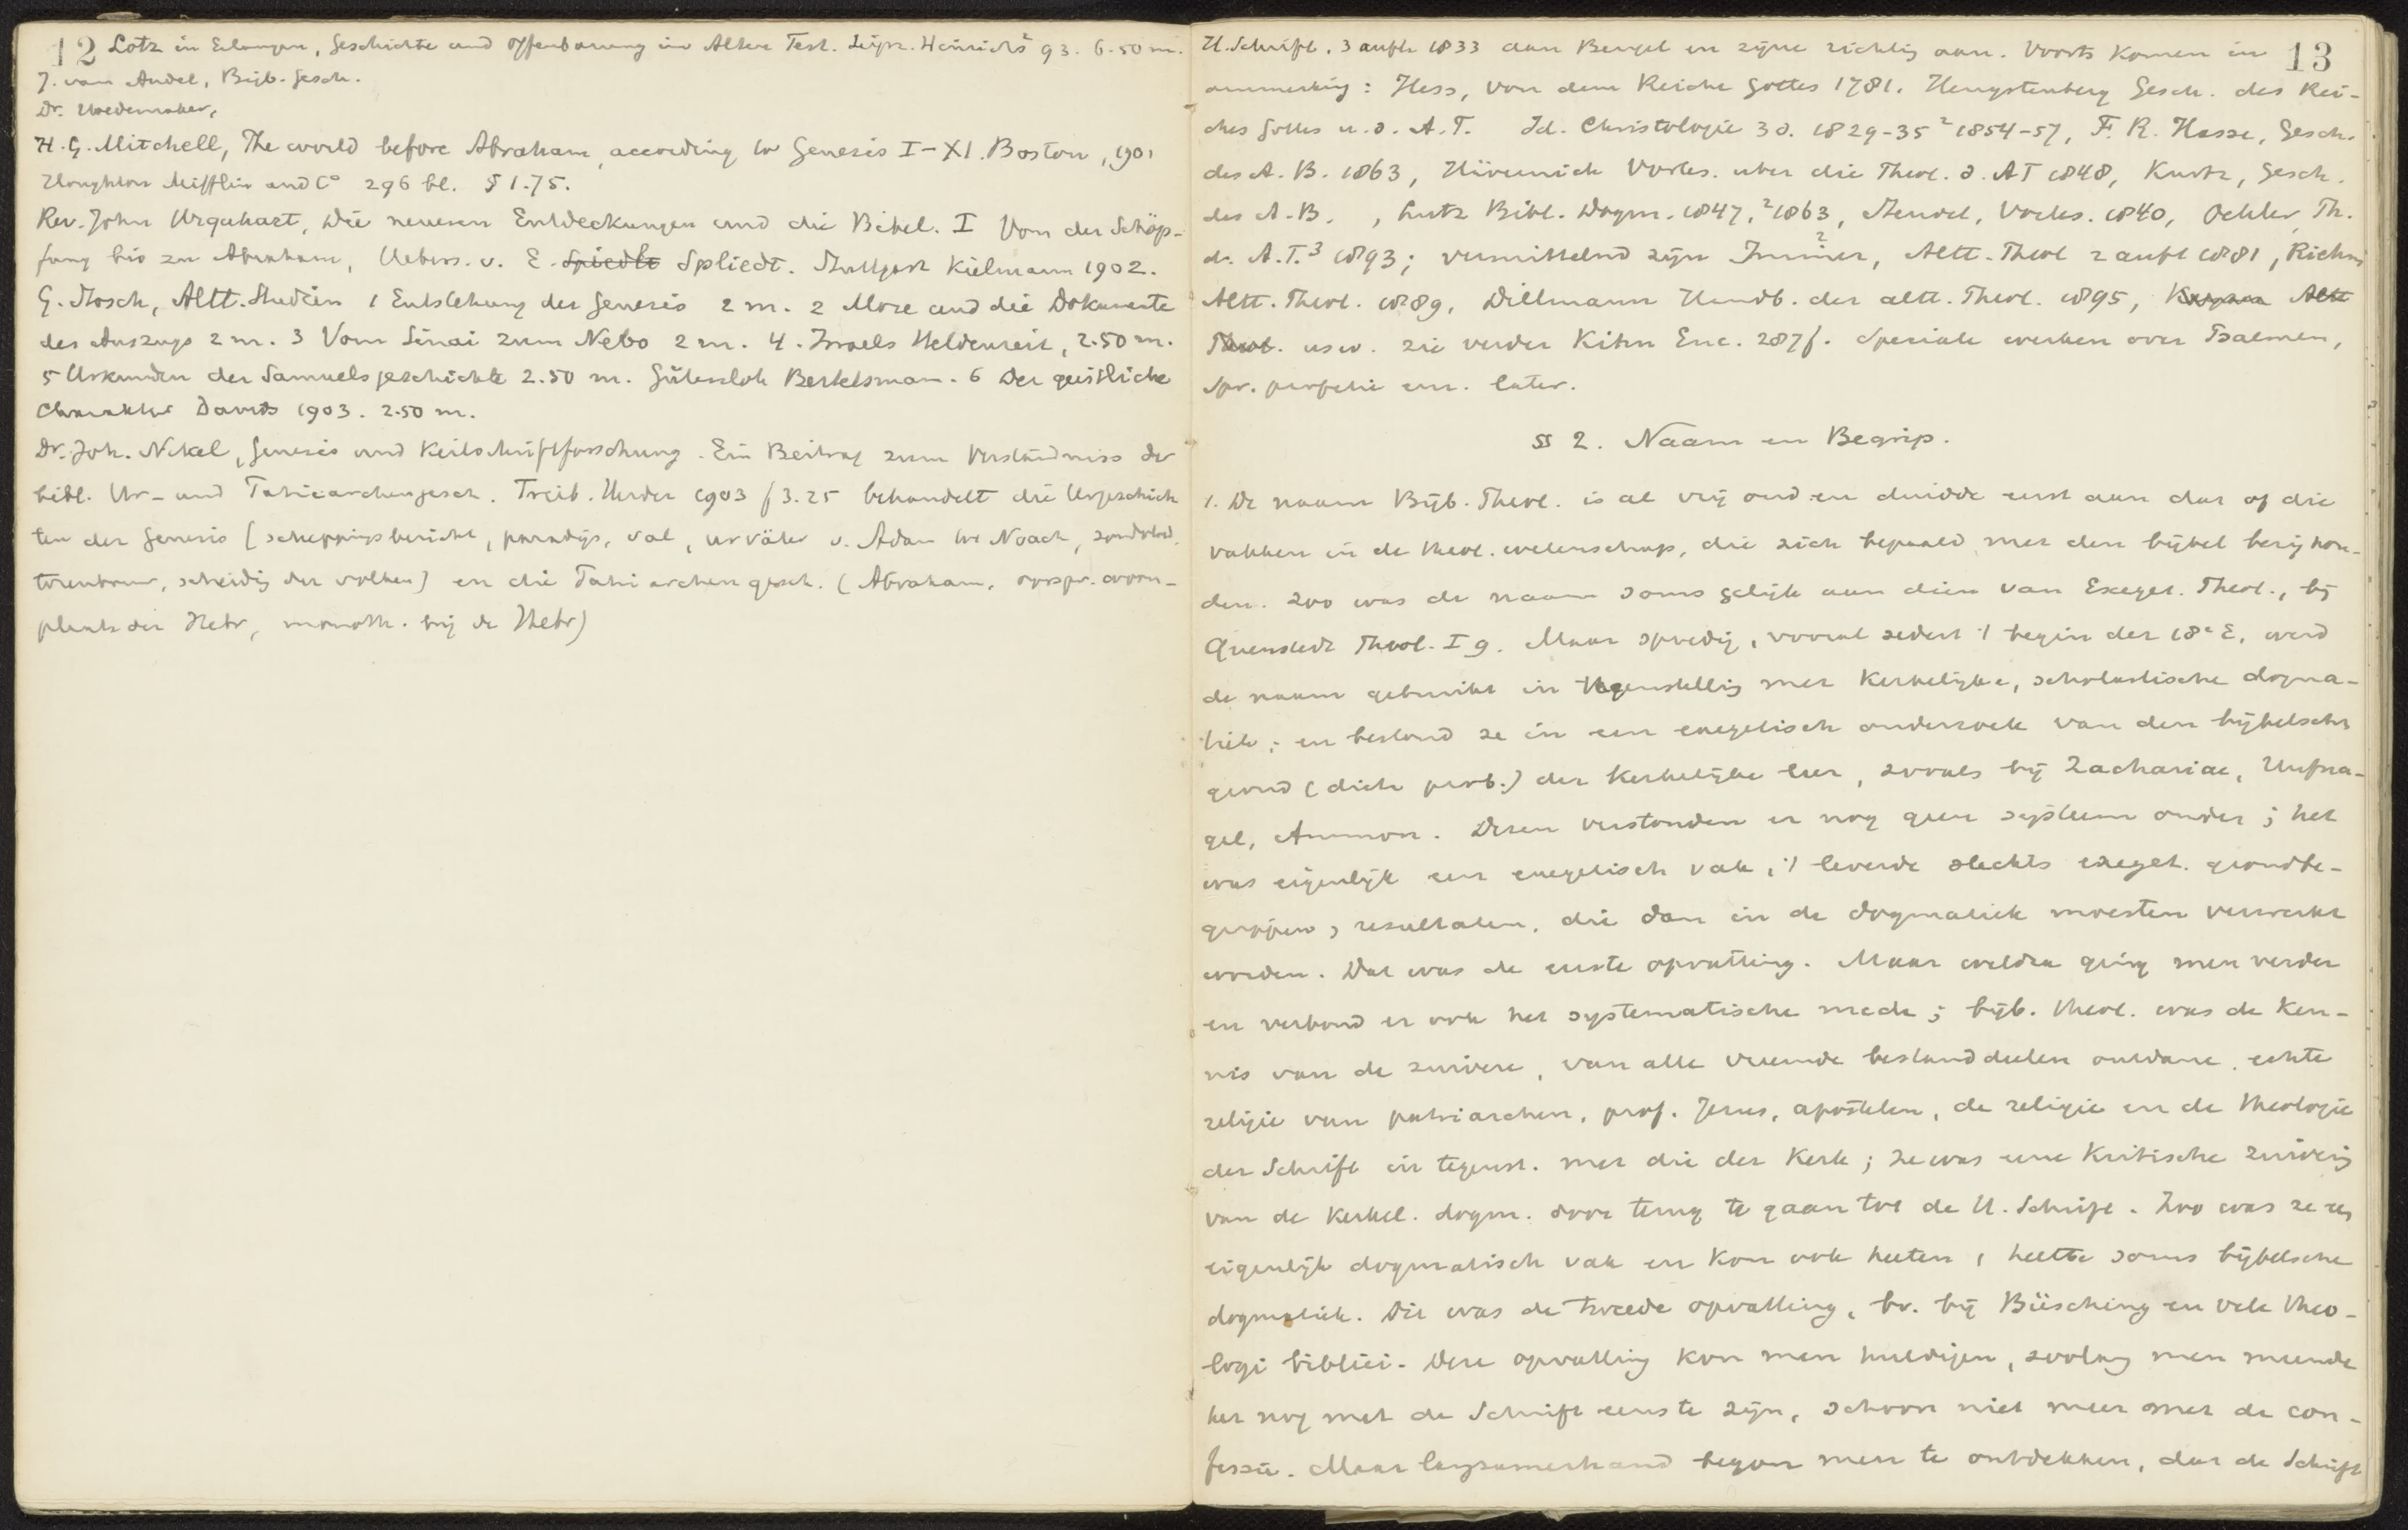 12 Lotz in Erlangen, Geschichte und Offenbarung im Alten Test. Leipz. Hinrichs² 93. 6.50 m.
J. van Andel, Bijb. Gesch.
Dr. Hoedemaker,
H. G. Mitchell, The world before Abraham, according to Genesis I-XI. Boston, 1901
Houghton Mifflin and C° 296 bl. $ 1.75.
Rev. John Urquhart, Die neueren Entdeckungen und die Bibel. I Von der Schöp-
fung bis zu Abraham, Uebers. v. E. Spiedlt Spliedt. Stuttgart Kielmann 1902.
G. Stosch, Altt. Studien 1 Entstehung der Genesis 2 m. 2 Mose und die Dokumente
des Auszugs 2 m. 3 Vom Sinai zum Nebo 2 m. 4. Israels Heldenzeit, 2.50 m.
5 Urkunden der Samuelsgeschichte 2.50 m. Gütersloh Bertelsmann. 6 Der geistliche
Charakter Davids 1903. 2.50 m.
Dr. Joh. Nikel, Genesis und Keilschriftforschung. Ein Beitrag zum Verständniss der
bibl. Ur- und Patriarchengesch. Freib. Herder 1903 f 3.25 behandelt die Urgeschich
ten der Genesis [scheppingsbericht, paradijs, val, urväter v. Adam tot Noach, zondvloed,
torenbouw, scheidig der volken] en die Patriarchengesch. (Abraham, oorspr. woon-
plaats der Hebr, monoth. bij de Hebr)
H. Schrift, 3 aufl. 1833 aan Bengel en zijne richtig aan. Voorts komen in 13
anmerking: Hess, Von dem Reiche Gottes 1781. Hengstenberg Gesch. des Rei-
ches Gottes u. d. A.T. Id. Christologie 3 d. 1829-35 ² 1854-57, F. R. Hasse, Gesch.
des A. B. 1863, Hävernick Vorles. uber die Theol. d. AT 1848, Kurtz, Gesch.
des A. B. , Lutz Bibl. Dogm. 1847, ²1863, Steudel, Vorles. 1840, Oehler, Th.
d. A.T.³ 1893; vermittelnd zijn Immer, Altt. Theol 2 aufl 1881, Riehm
Altt. Theol. 1889, Dillmann Handb. der altt. Theol. 1895, Kayser Altt
Theol. usw. zie verder Kihn Enc. 287f. Speciale werken over Psalmen,
Spr. profetie enz. later.
§§ 2. Naam en Begrip.
1. De naam Bijb. Theol. is al vrij oud en duidde eerst aan dat of die
vakken in de theol. wetenschap, die zich bepaald met den bijbel bezig hou-
den. Zoo was de naam soms gelijk aan dien van Exeget. Theol., bij
Quenstedt Theol. I 9. Maar spoedig, vooral sedert 't begin der 18e E. werd
de naam gebruikt in tegenstellig met kerkelijke, scholastische dogma-
tiek; en bestond ze in een exegetisch onderzoek van den bijbelschen
grond (dicta prob.) der kerkelijke leer, zooals bij Zachariae, Hufna-
gel, Ammon. Dezen verstonden er nog geen systeem onder; het
was eigenlijk een exegetisch vak, 't leverde slechts exeget. grondbe-
grippen, resultaten, die dan in de dogmatiek moesten verwerkt
worden. Dat was de eerste opvatting. Maar weldra ging men verder
en verbond er ook het systematische mede; bijb. theol. was de ken-
nis van de zuivere, van alle vreemde bestanddeelen ontdane, echte
religie van patriarchen, prof. Jezus, apostelen, de religie en de theologie
der Schrift in tegenst. met die der Kerk; ze was eene kritische zuiverig
van de kerkel. dogm. door terug te gaan tot de H. Schrift. Zoo was ze een
eigenlijk dogmatisch vak en kon ook heeten, heette soms bijbelsche
dogmatiek. Dit was de tweede opvatting, bv. bij Büsching en vele theo-
logi biblici. Deze opvatting kon men huldigen, zoolang men meende
het nog met de Schrift eens te zijn, schoon niet meer met de con-
fessie. Maar langzamerhand begon men te ontdekken, dat de Schrift